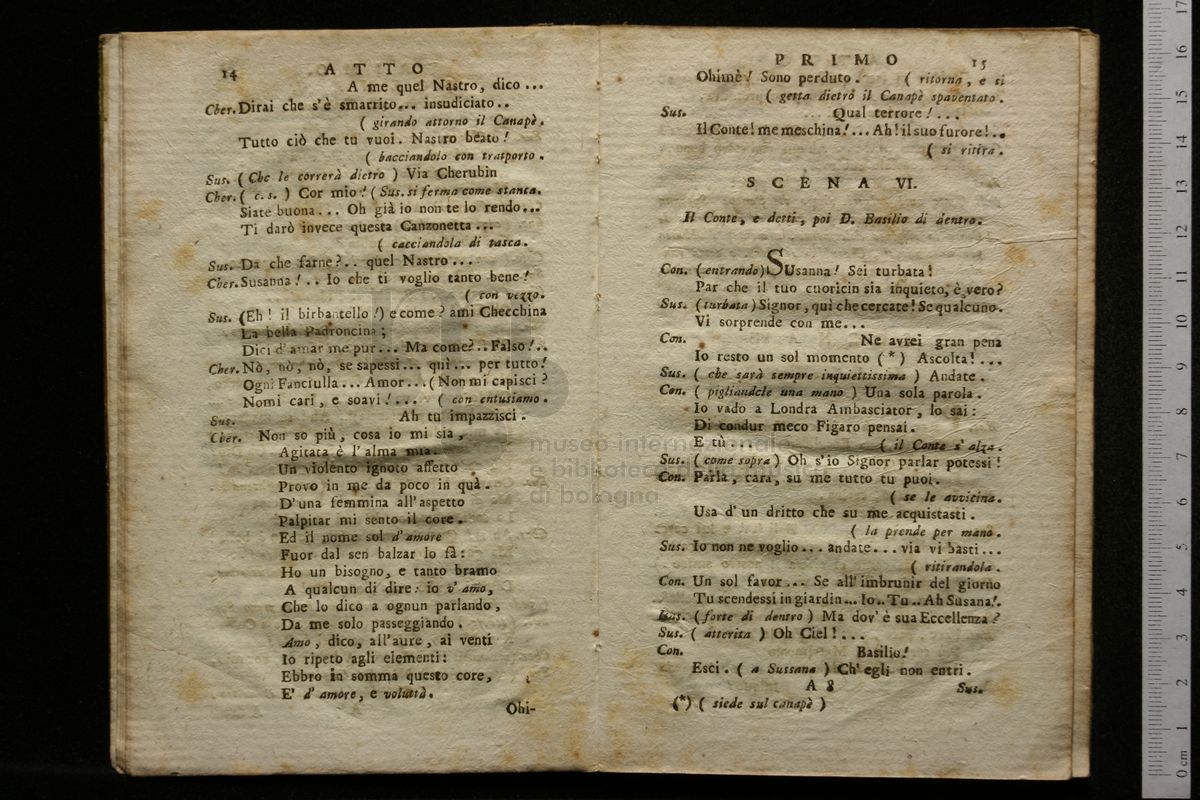 14 ATTO
A me quel Nastro, dico ...
Cher. Dirai che s'è smarrito... insudiciato..
( girando attorno il Canapè.
Tutto ciò che tu vuoi. Nastro beato!
( bacciandolo con trasporto.
Sus. ( Che le correrà dietro ) Via Cherubin
Cher. ( c. s. ) Cor mio! (Sus. si ferma come stanca.
Siate buona... Oh già io non te lo rendo...
Ti darò invece questa Canzonetta ...
( cacciandola di tasca.
Sus. Da che farne?.. quel Nastro ...
Cher. Susanna!.. Io che ti voglio tanto bene!
( con vezzo.
Sus. (Eh! il birbantello!) e come? ami Checchina
La bella Padroncina;
Dici d'amar me pur... Ma come?.. Falso!..
Cher. Nò, nò, nò, se sapessi... quì... per tutto!
Ogni Fanciulla... Amor...(Non mi capisci?
Nomi cari, e soavi!... ( con entusiamo.
Sus. Ah tu impazzisci.
Cher. Non so più, cosa io mi sia,
Agitata è l'alma mia.
Un violento ignoto affetto
Provo in me da poco in quà.
D'una femmina all'aspetto
Palpitar mi sento il core.
Ed il nome sol d'amore
Fuor dal sen balzar lo fà:
Ho un bisogno, e tanto bramo
A qualcun di dire: io v'amo,
Che lo dico a ognun parlando,
Da me solo passeggiando.
Amo, dico, all'aure, ai venti
Io ripeto agli elementi:
Ebbro in somma questo core,
E' d'amore, e voluttà.
Ohi-
PRIMO 15
Ohimè! Sono perduto. ( ritorna, e si
( getta dietro il Canapè spaventato.
Sus. Qual terrore!...
Il Conte! me meschina!... Ah! il suo furore!..
( si ritira.
SCENA VI.
Il Conte, e detti, poi D. Basilio di dentro.
Con. (entrando) SUsanna! Sei turbata!
Par che il tuo cuoricin sia inquieto, è vero?
Sus. (turbata) Signor, quì che cercate! Se qualcuno.
Vi sorprende con me...
Con. Ne avrei gran pena
Io resto un sol momento (*) Ascolta!...
Sus. ( che sarà sempre inquietissima ) Andate.
Con. ( pigliandole una mano ) Una sola parola.
Io vado a Londra Ambasciator, lo sai:
Di condur meco Figaro pensai.
E tù... ( il Conte s'alza.
Sus. ( come sopra ) Oh s'io Signor parlar potessi!
Con. Parla, cara, su me tutto tu puoi.
( se le avvicina.
Usa d'un dritto che su me acquistasti.
( la prende per mano.
Sus. Io non ne voglio... andate... via vi basti...
( ritirandola.
Con. Un sol favor... Se all'imbrunir del giorno
Tu scendessi in giardin... Io.. Tu.. Ah Susana!.
Bas. (forte di dentro) Ma dov'è sua Eccellenza?
Sus. ( atterita ) Oh Ciel!...
Con. Basilio!
Esci. ( a Sussana ) Ch'egli non entri.
A 8 Sus.
(*) ( siede sul canapè )
museo internazionale
e biblioteca della musica
di bologna
0 cm 1 2 3 4 5 6 7 8 9 10 11 12 13 14 15 16 17